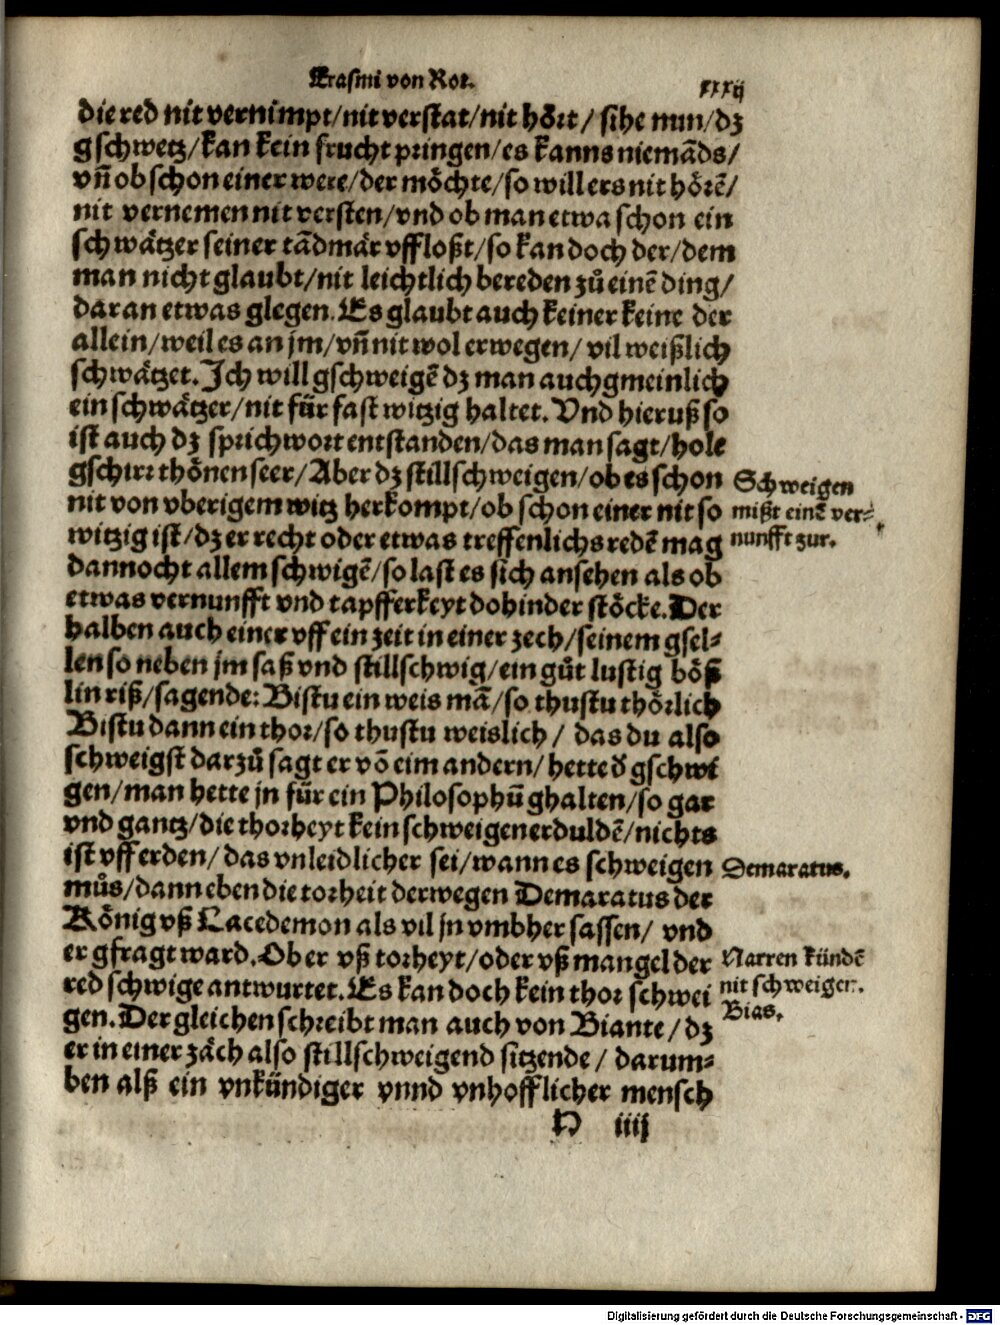 Erasmi von Rot.
xxxij
die red nit vernimpt/nit verstat/nit hört/ sihe nun/dz
gschwetz/kan kein frucht pringen/es kanns niemāds/
vn̄ ob schon einer were/der möchte/so will ers nit hörē/
nit vernemen nit versten/vnd ob man etwa schon ein
schwätzer seiner tādmär vffloßt/so kan doch der/dem
man nicht glaubt/nit leichtlich bereden zů einē ding/
daran etwas glegen. Es glaubt auch keiner keine der
allein/weil es an jm/vn̄ nit wol erwegen/ vil weißlich
schwätzet. Ich will gschweigē dz man auch gmeinlich
ein schwätzer/nit für fast witzig haltet. Vnd hieruß so
ist auch dz sprichwort entstanden/das man sagt/hole
gschirr thönen seer/Aber dz stillschweigen/ob es schon
nit von vberigem witz herkompt/ob schon einer nit so
witzig ist/dz er recht oder etwas treffenlichs redē mag
dannocht allem schwigē/so last es sich ansehen als ob
etwas vernunfft vnd tapfferkeyt dohinder stöcke. Der
halben auch einer vff ein zeit in einer zech/seinem gsel⸗
len so neben jm saß vnd stillschwig/ein gůt lustig böß
lin riß/sagende: Bistu ein weis mā/so thustu thörlich
Bistu dann ein thor/so thustu weislich/ das du also
schweigst darzů sagt er vō eim andern/hette d̄ gschwi
gen/man hette jn für ein Philosophū ghalten/so gar
vnd gantz/die thorheyt kein schweigen erduldē/nichts
ist vff erden/das vnleidlicher sei/wann es schweigen
můs/dann eben die torheit derwegen Demaratus der
König vß Lacedemon als vil jn vmbher sassen/ vnd
er gfragt ward. Ob er vß torheyt/oder vß mangel der
red schwige antwurtet. Es kan doch kein thor schwei
gen. Der gleichen schreibt man auch von Biante/dz
er in einer zäch also stillschweigend sitzende/ darum⸗
ben alß ein vnkündiger vnnd vnhofflicher mensch
Schweigen
mißt einē ver⸗
nunfft zur.
Demaratus.
Narren kündē
nit schweigen.
Bias.
iiij
Digitalisierung gefördert durch die Deutsche Forschungsgemeinschaft - DFG